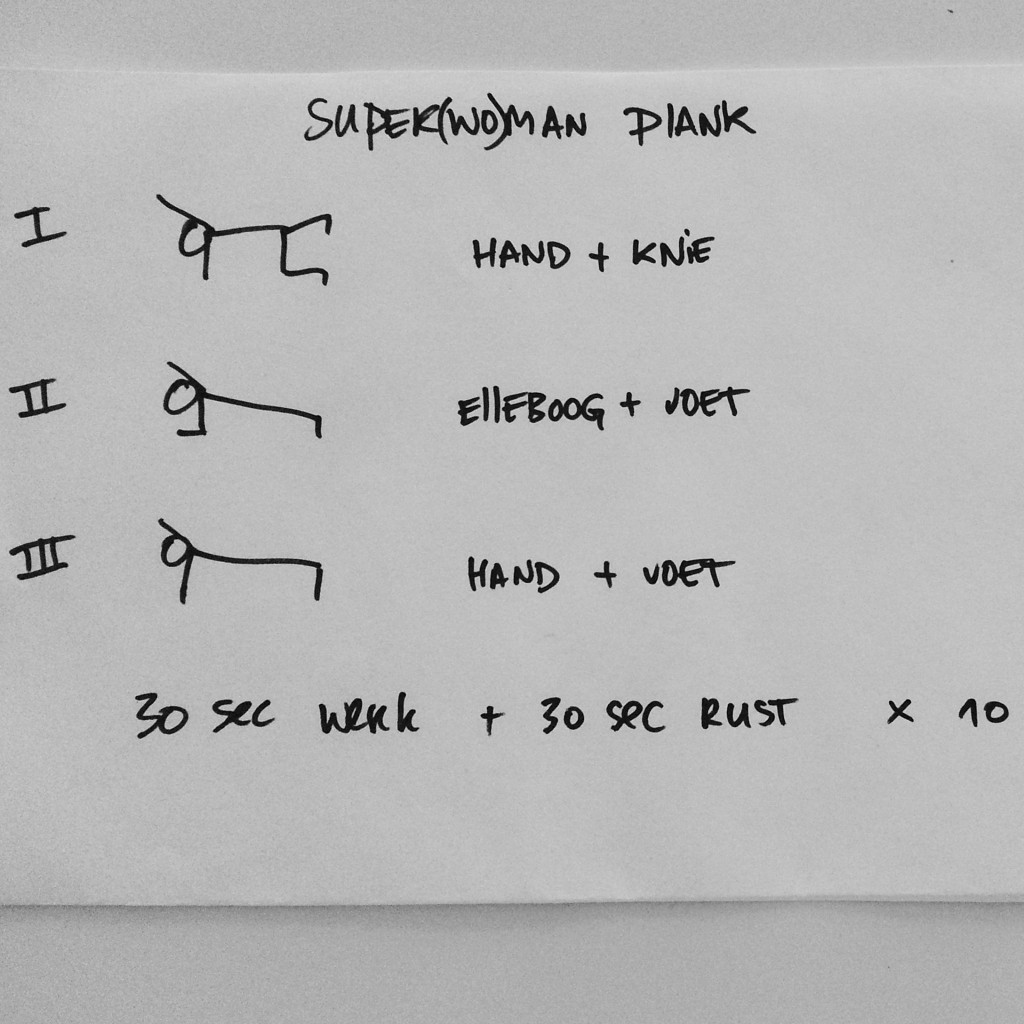 SUPER(WO)MAN PLANK
I HAND + KNIE
II ELLEBOOG + VOET
III HAND + VOET
30 sec werk + 30 sec RUST x 10